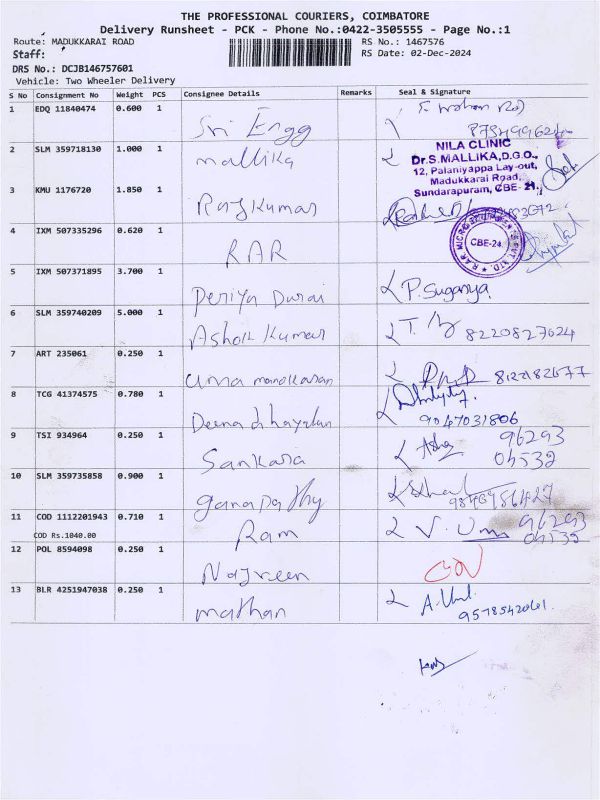 THE PROFESSIONAL COURIERS, COIMBATORE
Delivery Runsheet - PCK - Phone No.:0422-3505555 - Page No.:1
Route: MADUKKARAI ROAD
RS No.: 1467576
Staff:
RS Date: 02-Dec-2024
DRS No.: DCJB146757601
Vehicle: Two Wheeler Delivery
S No Consignment No Weight PCS Consignee Details Remarks Seal & Signature
1 EDQ 11840474 0.600 1 Sri Engg
2 SLM 359718130 1.000 1 mallika
NILA CLINIC
Dr.S.MALLIKA,D.G.O.,
12, Palaniyappa Lay-out,
Madukkarai Road,
Sundarapuram, CBE- 24.
3 KMU 1176720 1.850 1 Rajkumar
4 IXM 507335296 0.620 1 RAR
CBE-24.
5 IXM 507371895 3.700 1 Periya Durai P. Suganya
6 SLM 359740209 5.000 1 Ashok Kumar 8220827624
7 ART 235061 0.250 1 uma manokaran
8 TCG 41374575 0.780 1 Deena dhayalan
9047031806
9 TSI 934964 0.250 1 Sankara 96293
04532
10 SLM 359735858 0.900 1 ganapathy
11 COD 1112201943 0.710 1 Ram V. Uma 96293
04532
COD Rs.1040.00
12 POL 8594098 0.250 1 Najreen
13 BLR 4251947038 0.250 1 mathan